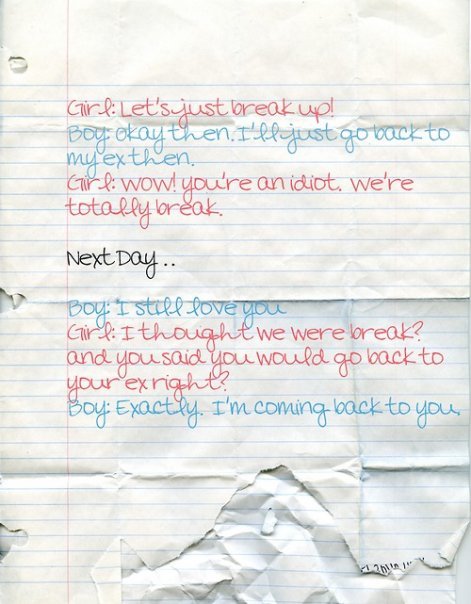 Girl: Let's just break up!
Boy: okay then. I'll just go back to
my ex then.
Girl: wow! you're an idiot. we're
totally break.
Next Day ..
Boy: I still love you
Girl: I thought we were break?
and you said you would go back to
your ex right?
Boy: Exactly. I'm coming back to you.